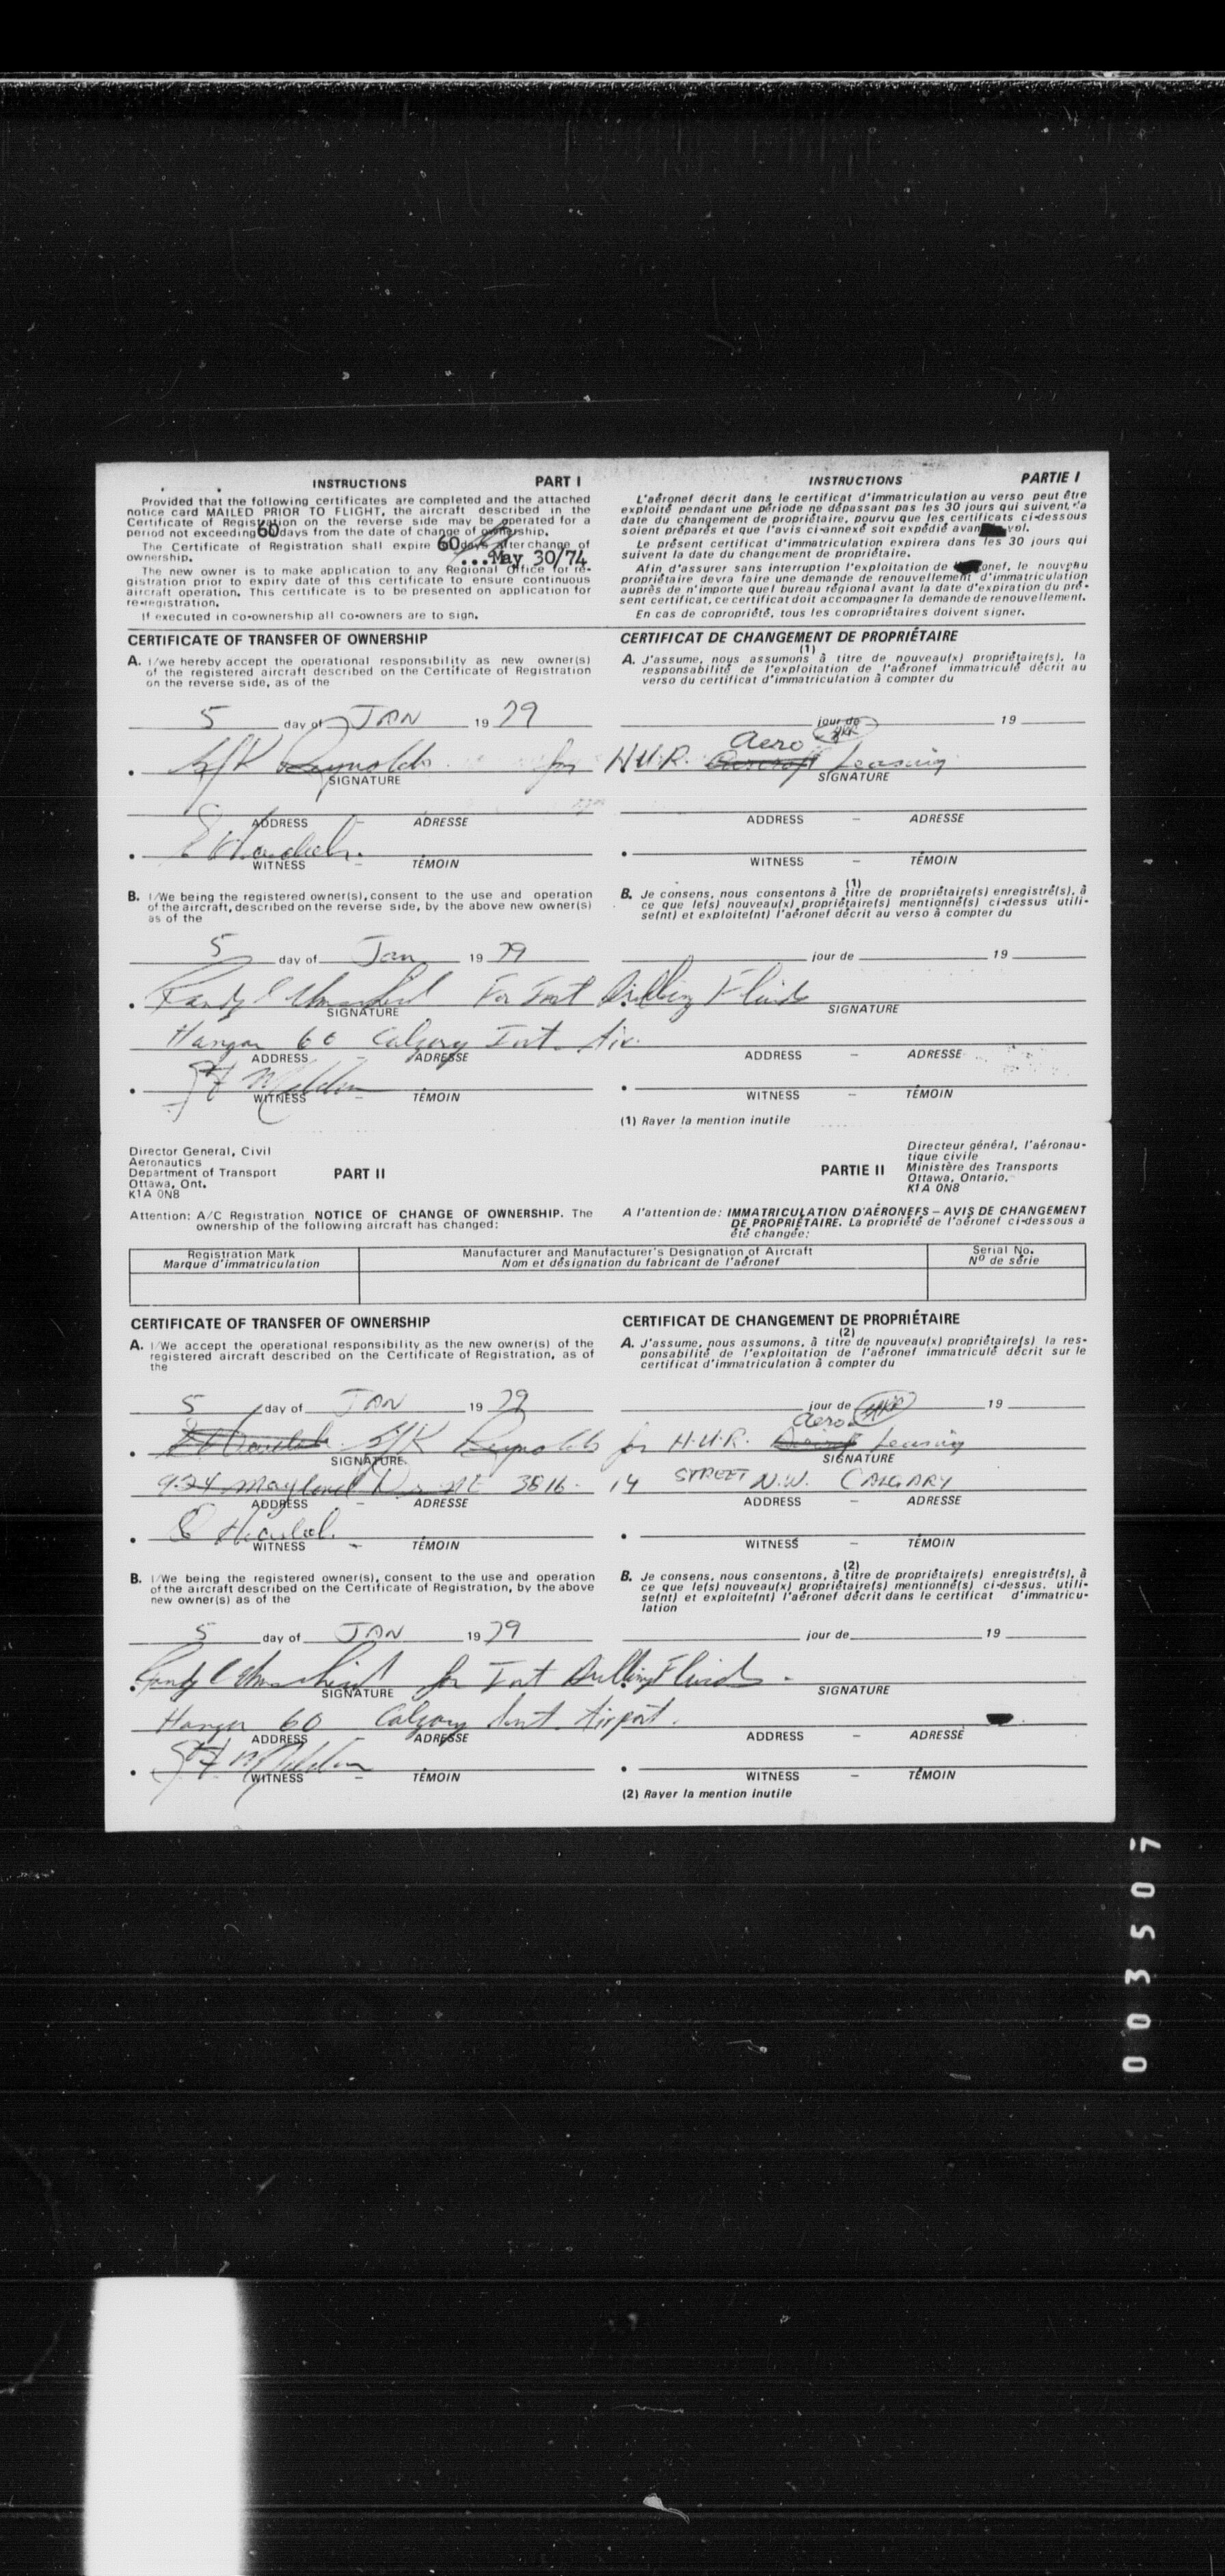 INSTRUCTIONS PART I
Provided that the following certificates are completed and the attached
notice card MAILED PRIOR TO FLIGHT, the aircraft described in the
Certificate of Registration on the reverse side may be operated for a
period not exceeding 60 days from the date of change of ownership.
The Certificate of Registration shall expire 60 days after change of
ownership. ...May 30/74
The new owner is to make application to any Regional Office for re-
gistration prior to expiry date of this certificate to ensure continuous
aircraft operation. This certificate is to be presented on application for
re-registration.
If executed in co-ownership all co-owners are to sign.
CERTIFICATE OF TRANSFER OF OWNERSHIP
A. I/we hereby accept the operational responsibility as new owner(s)
of the registered aircraft described on the Certificate of Registration
on the reverse side, as of the
5 day of JAN 19 79
Reynolds for H.U.R. Aero Leasing
SIGNATURE
ADDRESS – ADRESSE
WITNESS – TÉMOIN
B. I/We being the registered owner(s), consent to the use and operation
of the aircraft, described on the reverse side, by the above new owner(s)
as of the
5 day of Jan 19 79
For Int Drilling Fluids
SIGNATURE
Hangar 60 Calgary Int. Air.
ADDRESS – ADRESSE
WITNESS – TÉMOIN
INSTRUCTIONS PARTIE I
L'aéronef décrit dans le certificat d'immatriculation au verso peut être
exploité pendant une période ne dépassant pas les 30 jours qui suivent la
date du changement de propriétaire, pourvu que les certificats ci-dessous
soient préparés et que l'avis ci-annexé soit expédié avant
Le présent certificat d'immatriculation expirera dans les 30 jours qui
suivent la date du changement de propriétaire.
Afin d'assurer sans interruption l'exploitation de le nouveau
propriétaire devra faire une demande de renouvellement d'immatriculation
auprès de n'importe quel bureau régional avant la date d'expiration du pré-
sent certificat, ce certificat doit accompagner la demande de renouvellement.
En cas de copropriété, tous les copropriétaires doivent signer.
CERTIFICAT DE CHANGEMENT DE PROPRIÉTAIRE
(1)
A. J'assume, nous assumons à titre de nouveau(x) propriétaire(s), la
responsabilité de l'exploitation de l'aéronef immatriculé décrit au
verso du certificat d'immatriculation à compter du
jour de 19
SIGNATURE
ADDRESS – ADRESSE
WITNESS – TÉMOIN
(1)
B. Je consens, nous consentons à titre de propriétaire(s) enregistré(s), à
ce que le(s) nouveau(x) propriétaire(s) mentionné(s) ci-dessus utili-
se(nt) et exploite(nt) l'aéronef décrit au verso à compter du
jour de 19
SIGNATURE
ADDRESS – ADRESSE
WITNESS – TÉMOIN
(1) Rayer la mention inutile
Director General, Civil
Aeronautics
Department of Transport
Ottawa, Ont.
K1A 0N8
PART II
PARTIE II
Directeur général, l'aéronau-
tique civile
Ministère des Transports
Ottawa, Ontario.
K1A 0N8
Attention: A/C Registration NOTICE OF CHANGE OF OWNERSHIP. The
ownership of the following aircraft has changed:
A l'attention de: IMMATRICULATION D'AÉRONEFS – AVIS DE CHANGEMENT
DE PROPRIÉTAIRE. La propriété de l'aéronef ci-dessous a
été changée:
Registration Mark
Marque d'immatriculation
Manufacturer and Manufacturer's Designation of Aircraft
Nom et désignation du fabricant de l'aéronef
Serial No.
Nº de série
CERTIFICATE OF TRANSFER OF OWNERSHIP
A. I/We accept the operational responsibility as the new owner(s) of the
registered aircraft described on the Certificate of Registration, as of
the
5 day of JAN 19 79
Reynolds for H.U.R. Aero Leasing
SIGNATURE
924 Mayland Dr NE 3816 - 14 STREET N.W. CALGARY
ADDRESS – ADRESSE
WITNESS – TÉMOIN
B. I/We being the registered owner(s), consent to the use and operation
of the aircraft described on the Certificate of Registration, by the above
new owner(s) as of the
5 day of JAN 19 79
for Int Drilling Fluids
SIGNATURE
Hangar 60 Calgary Int. Airport.
ADDRESS – ADRESSE
WITNESS – TÉMOIN
CERTIFICAT DE CHANGEMENT DE PROPRIÉTAIRE
(2)
A. J'assume, nous assumons, à titre de nouveau(x) propriétaire(s) la res-
ponsabilité de l'exploitation de l'aéronef immatriculé décrit sur le
certificat d'immatriculation à compter du
jour de 19
SIGNATURE
ADDRESS – ADRESSE
WITNESS – TÉMOIN
(2)
B. Je consens, nous consentons, à titre de propriétaire(s) enregistré(s), à
ce que le(s) nouveau(x) propriétaire(s) mentionné(s) ci-dessus, utili-
se(nt) et exploite(nt) l'aéronef décrit dans le certificat d'immatricu-
lation
jour de 19
SIGNATURE
ADDRESS – ADRESSE
WITNESS – TÉMOIN
(2) Rayer la mention inutile
003507